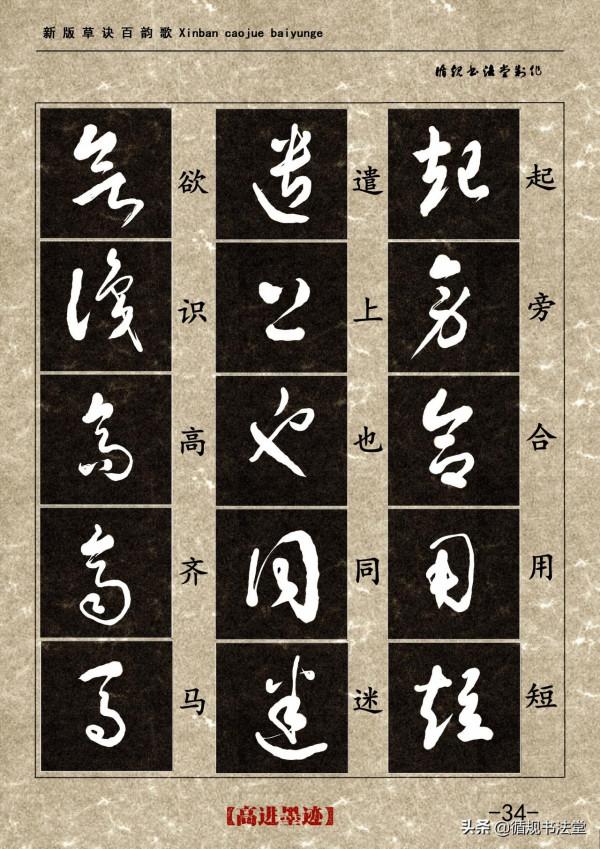 新版草诀百韵歌 Xinban caojue baiyunge
循规书法堂制作
起旁合用短
遣上也同迷
欲识高齐马
【高进墨迹】
-34-
头条 @循规书法堂